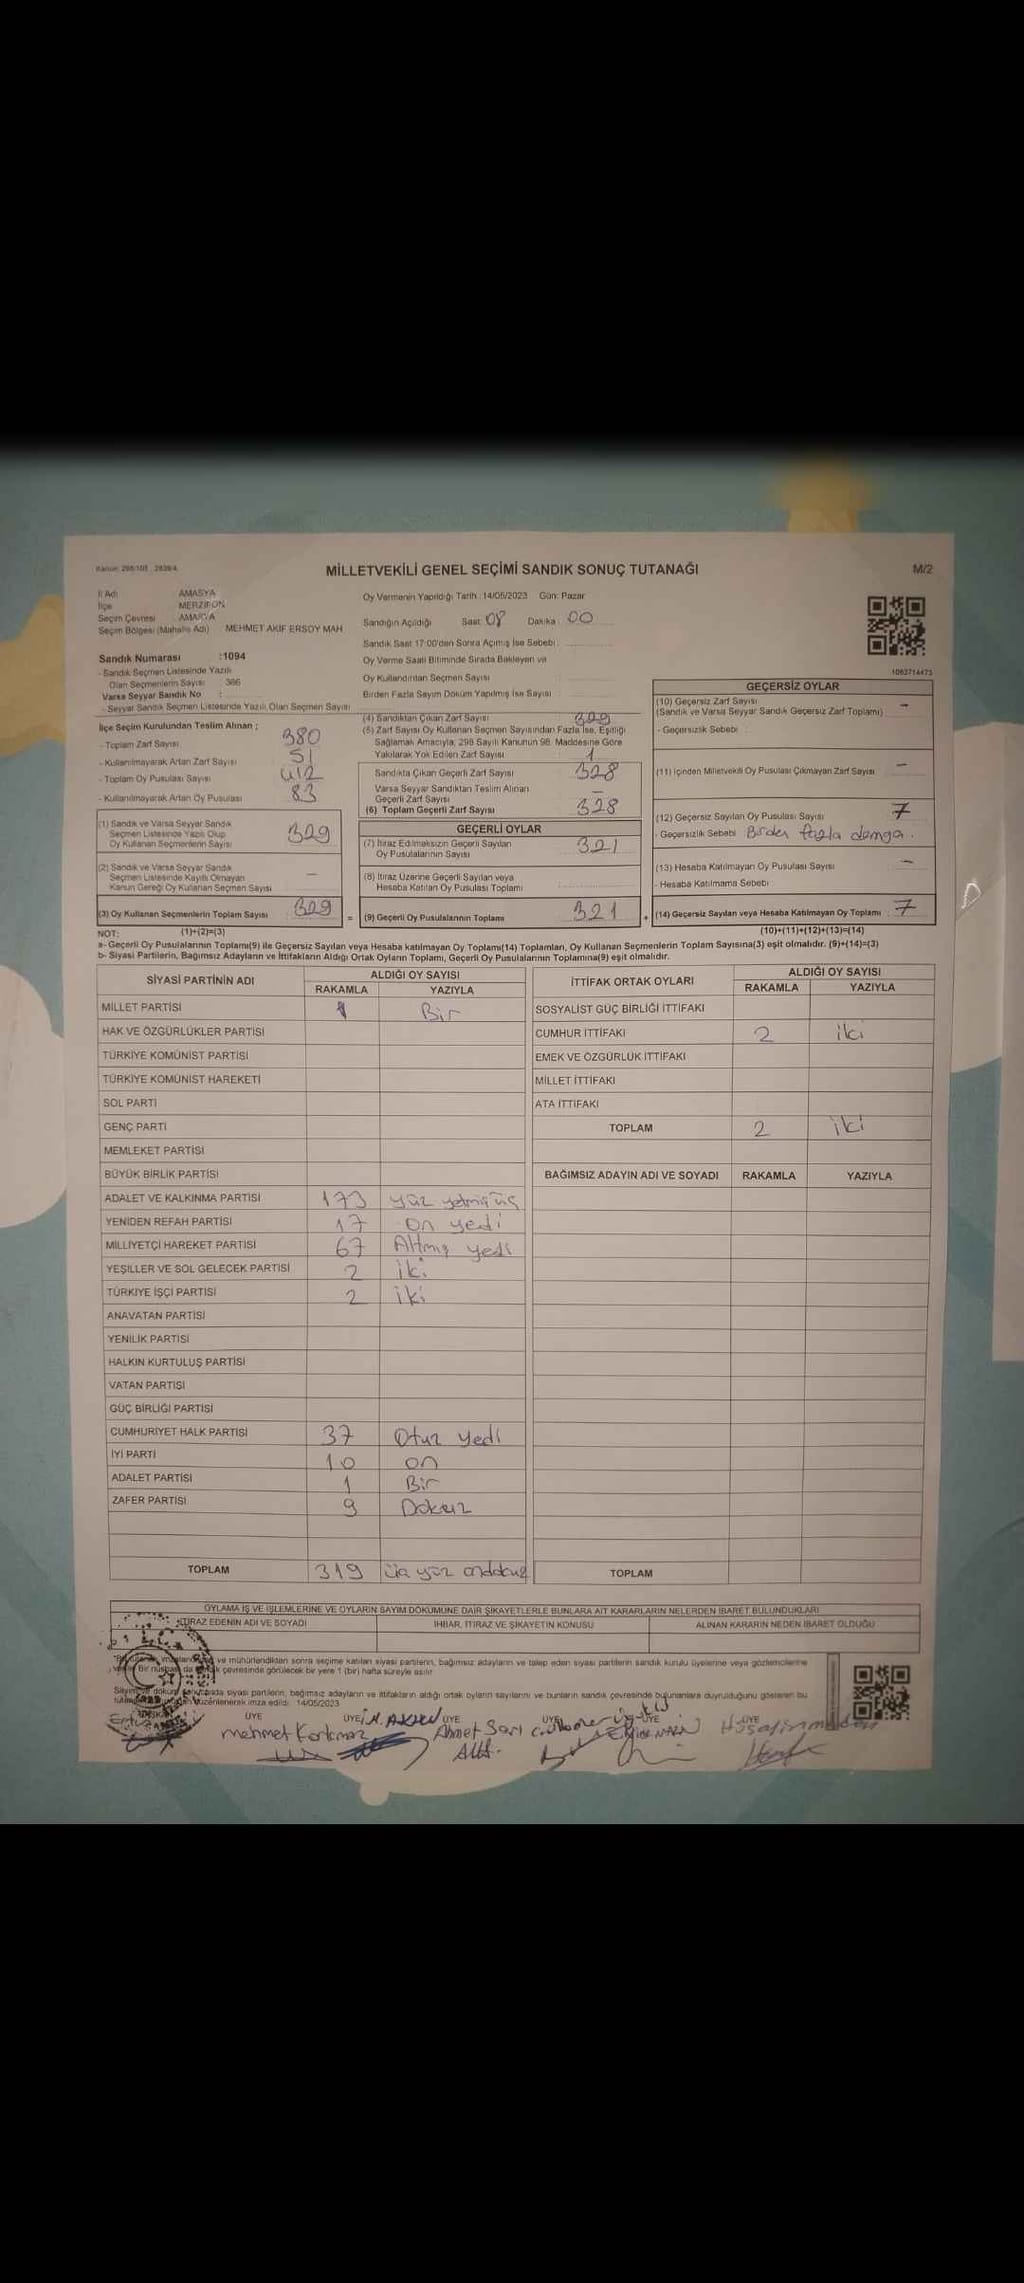 Kanun: 298/105 , 2839/4
MİLLETVEKİLİ GENEL SEÇİMİ SANDIK SONUÇ TUTANAĞI
M/2
İl Adı AMASYA
İlçe MERZİFON
Seçim Çevresi AMASYA
Seçim Bölgesi (Mahalle Adı) MEHMET AKİF ERSOY MAH
Oy Vermenin Yapıldığı Tarih : 14/05/2023 Gün: Pazar
Sandığın Açıldığı Saat: 08 Dakika : 00
Sandık Saat 17:00'den Sonra Açımış İse Sebebi :
Oy Verme Saati Bitiminde Sırada Bekleyen ve
Oy Kullandırılan Seçmen Sayısı
Birden Fazla Sayım Döküm Yapılmış İse Sayısı
Sandık Numarası :1094
- Sandık Seçmen Listesinde Yazılı
Olan Seçmenlerin Sayısı : 386
Varsa Seyyar Sandık No :
- Seyyar Sandık Seçmen Listesinde Yazılı Olan Seçmen Sayısı
1063714473
İlçe Seçim Kurulundan Teslim Alınan ;
- Toplam Zarf Sayısı 380
- Kullanılmayarak Artan Zarf Sayısı 51
- Toplam Oy Pusulası Sayısı 412
- Kullanılmayarak Artan Oy Pusulası 83
(1) Sandık ve Varsa Seyyar Sandık
Seçmen Listesinde Yazılı Olup
Oy Kullanan Seçmenlerin Sayısı 329
(2) Sandık ve Varsa Seyyar Sandık
Seçmen Listesinde Kayıtlı Olmayan
Kanun Gereği Oy Kullanan Seçmen Sayısı –
(3) Oy Kullanan Seçmenlerin Toplam Sayısı 329 =
(4) Sandıktan Çıkan Zarf Sayısı 329
(5) Zarf Sayısı Oy Kullanan Seçmen Sayısından Fazla İse, Eşitliği
Sağlamak Amacıyla, 298 Sayılı Kanunun 98. Maddesine Göre
Yakılarak Yok Edilen Zarf Sayısı 1
Sandıkta Çıkan Geçerli Zarf Sayısı 328
Varsa Seyyar Sandıktan Teslim Alınan
Geçerli Zarf Sayısı –
(6) Toplam Geçerli Zarf Sayısı 328
GEÇERLİ OYLAR
(7) İtiraz Edilmeksizin Geçerli Sayılan
Oy Pusulalarının Sayısı 321
(8) İtiraz Üzerine Geçerli Sayılan veya
Hesaba Katılan Oy Pusulası Toplamı
(9) Geçerli Oy Pusulalarının Toplamı 321 +
GEÇERSİZ OYLAR
(10) Geçersiz Zarf Sayısı
(Sandık ve Varsa Seyyar Sandık Geçersiz Zarf Toplamı) –
- Geçersizlik Sebebi :
(11) İçinden Milletvekili Oy Pusulası Çıkmayan Zarf Sayısı –
(12) Geçersiz Sayılan Oy Pusulası Sayısı 7
- Geçersizlik Sebebi Birden fazla damga.
(13) Hesaba Katılmayan Oy Pusulası Sayısı –
- Hesaba Katılmama Sebebi :
(14) Geçersiz Sayılan veya Hesaba Katılmayan Oy Toplamı : 7
NOT: (1)+(2)=(3) (10)+(11)+(12)+(13)=(14)
a- Geçerli Oy Pusulalarının Toplamı(9) ile Geçersiz Sayılan veya Hesaba katılmayan Oy Toplamı(14) Toplamları, Oy Kullanan Seçmenlerin Toplam Sayısına(3) eşit olmalıdır. (9)+(14)=(3)
b- Siyasi Partilerin, Bağımsız Adayların ve İttifakların Aldığı Ortak Oyların Toplamı, Geçerli Oy Pusulalarının Toplamına(9) eşit olmalıdır.
SİYASİ PARTİNİN ADI ALDIĞI OY SAYISI
RAKAMLA YAZIYLA
MİLLET PARTİSİ 1 Bir
HAK VE ÖZGÜRLÜKLER PARTİSİ
TÜRKİYE KOMÜNİST PARTİSİ
TÜRKİYE KOMÜNİST HAREKETİ
SOL PARTİ
GENÇ PARTİ
MEMLEKET PARTİSİ
BÜYÜK BİRLİK PARTİSİ
ADALET VE KALKINMA PARTİSİ 173 yüz yetmiş üç
YENİDEN REFAH PARTİSİ 17 on yedi
MİLLİYETÇİ HAREKET PARTİSİ 67 Altmış yedi
YEŞİLLER VE SOL GELECEK PARTİSİ 2 iki
TÜRKİYE İŞÇİ PARTİSİ 2 iki
ANAVATAN PARTİSİ
YENİLİK PARTİSİ
HALKIN KURTULUŞ PARTİSİ
VATAN PARTİSİ
GÜÇ BİRLİĞİ PARTİSİ
CUMHURİYET HALK PARTİSİ 37 Otuz yedi
İYİ PARTİ 10 on
ADALET PARTİSİ 1 Bir
ZAFER PARTİSİ 9 Dokuz
TOPLAM 319 üç yüz ondokuz
İTTİFAK ORTAK OYLARI ALDIĞI OY SAYISI
RAKAMLA YAZIYLA
SOSYALİST GÜÇ BİRLİĞİ İTTİFAKI
CUMHUR İTTİFAKI 2 iki
EMEK VE ÖZGÜRLÜK İTTİFAKI
MİLLET İTTİFAKI
ATA İTTİFAKI
TOPLAM 2 iki
BAĞIMSIZ ADAYIN ADI VE SOYADI RAKAMLA YAZIYLA
TOPLAM
OYLAMA İŞ VE İŞLEMLERİNE VE OYLARIN SAYIM DÖKÜMÜNE DAİR ŞİKAYETLERLE BUNLARA AİT KARARLARIN NELERDEN İBARET BULUNDUKLARI
İTİRAZ EDENİN ADI VE SOYADI İHBAR, İTİRAZ VE ŞİKAYETİN KONUSU ALINAN KARARIN NEDEN İBARET OLDUĞU
ve mühürlendikten sonra seçime katılan siyasi partilerin, bağımsız adayların ve talep eden siyasi partilerin sandık kurulu üyelerine veya gözlemcilerine
çevresinde görülecek bir yere 1 (bir) hafta süreyle asılır
siyasi partilerin, bağımsız adayların ve ittifakların aldığı ortak oyların sayılarını ve bunların sandık çevresinde bulunanlara duyrulduğunu gösteren bu
düzenlenerek imza edildi. 14/05/2023
ÜYE ÜYE ÜYE ÜYE ÜYE ÜYE
mehmet Korkmaz Ahmet Sarı